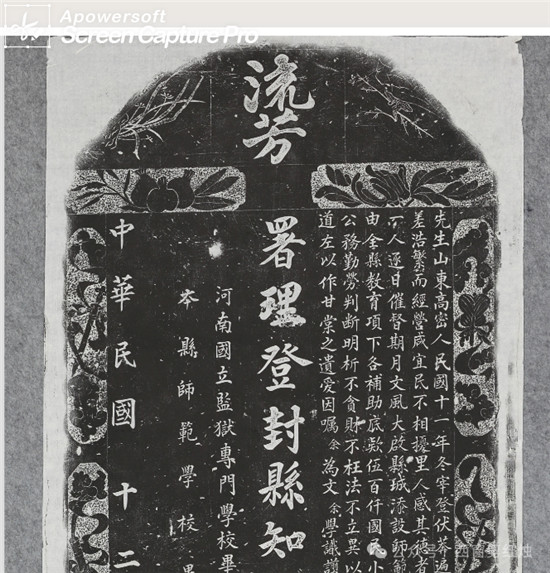 Apowersoft
Screen Capture Pro
流芳
先生山東高密人民國十一年冬宰登伏莽遍
差浩繁而經營咸宜民不相擾里人感其德者
一人逐日催督期月文風大啟縣城添設師範
由全縣教育項下各補助底款伍百仟國民小
公務勤勞判斷明析不貪財不枉法不立異以
道左以作甘棠之遺愛因嘱余為文余學識谫
署理登封縣知
河南國立監獄專門學校畢
本縣師範學校畢
中華民國十二
公众号